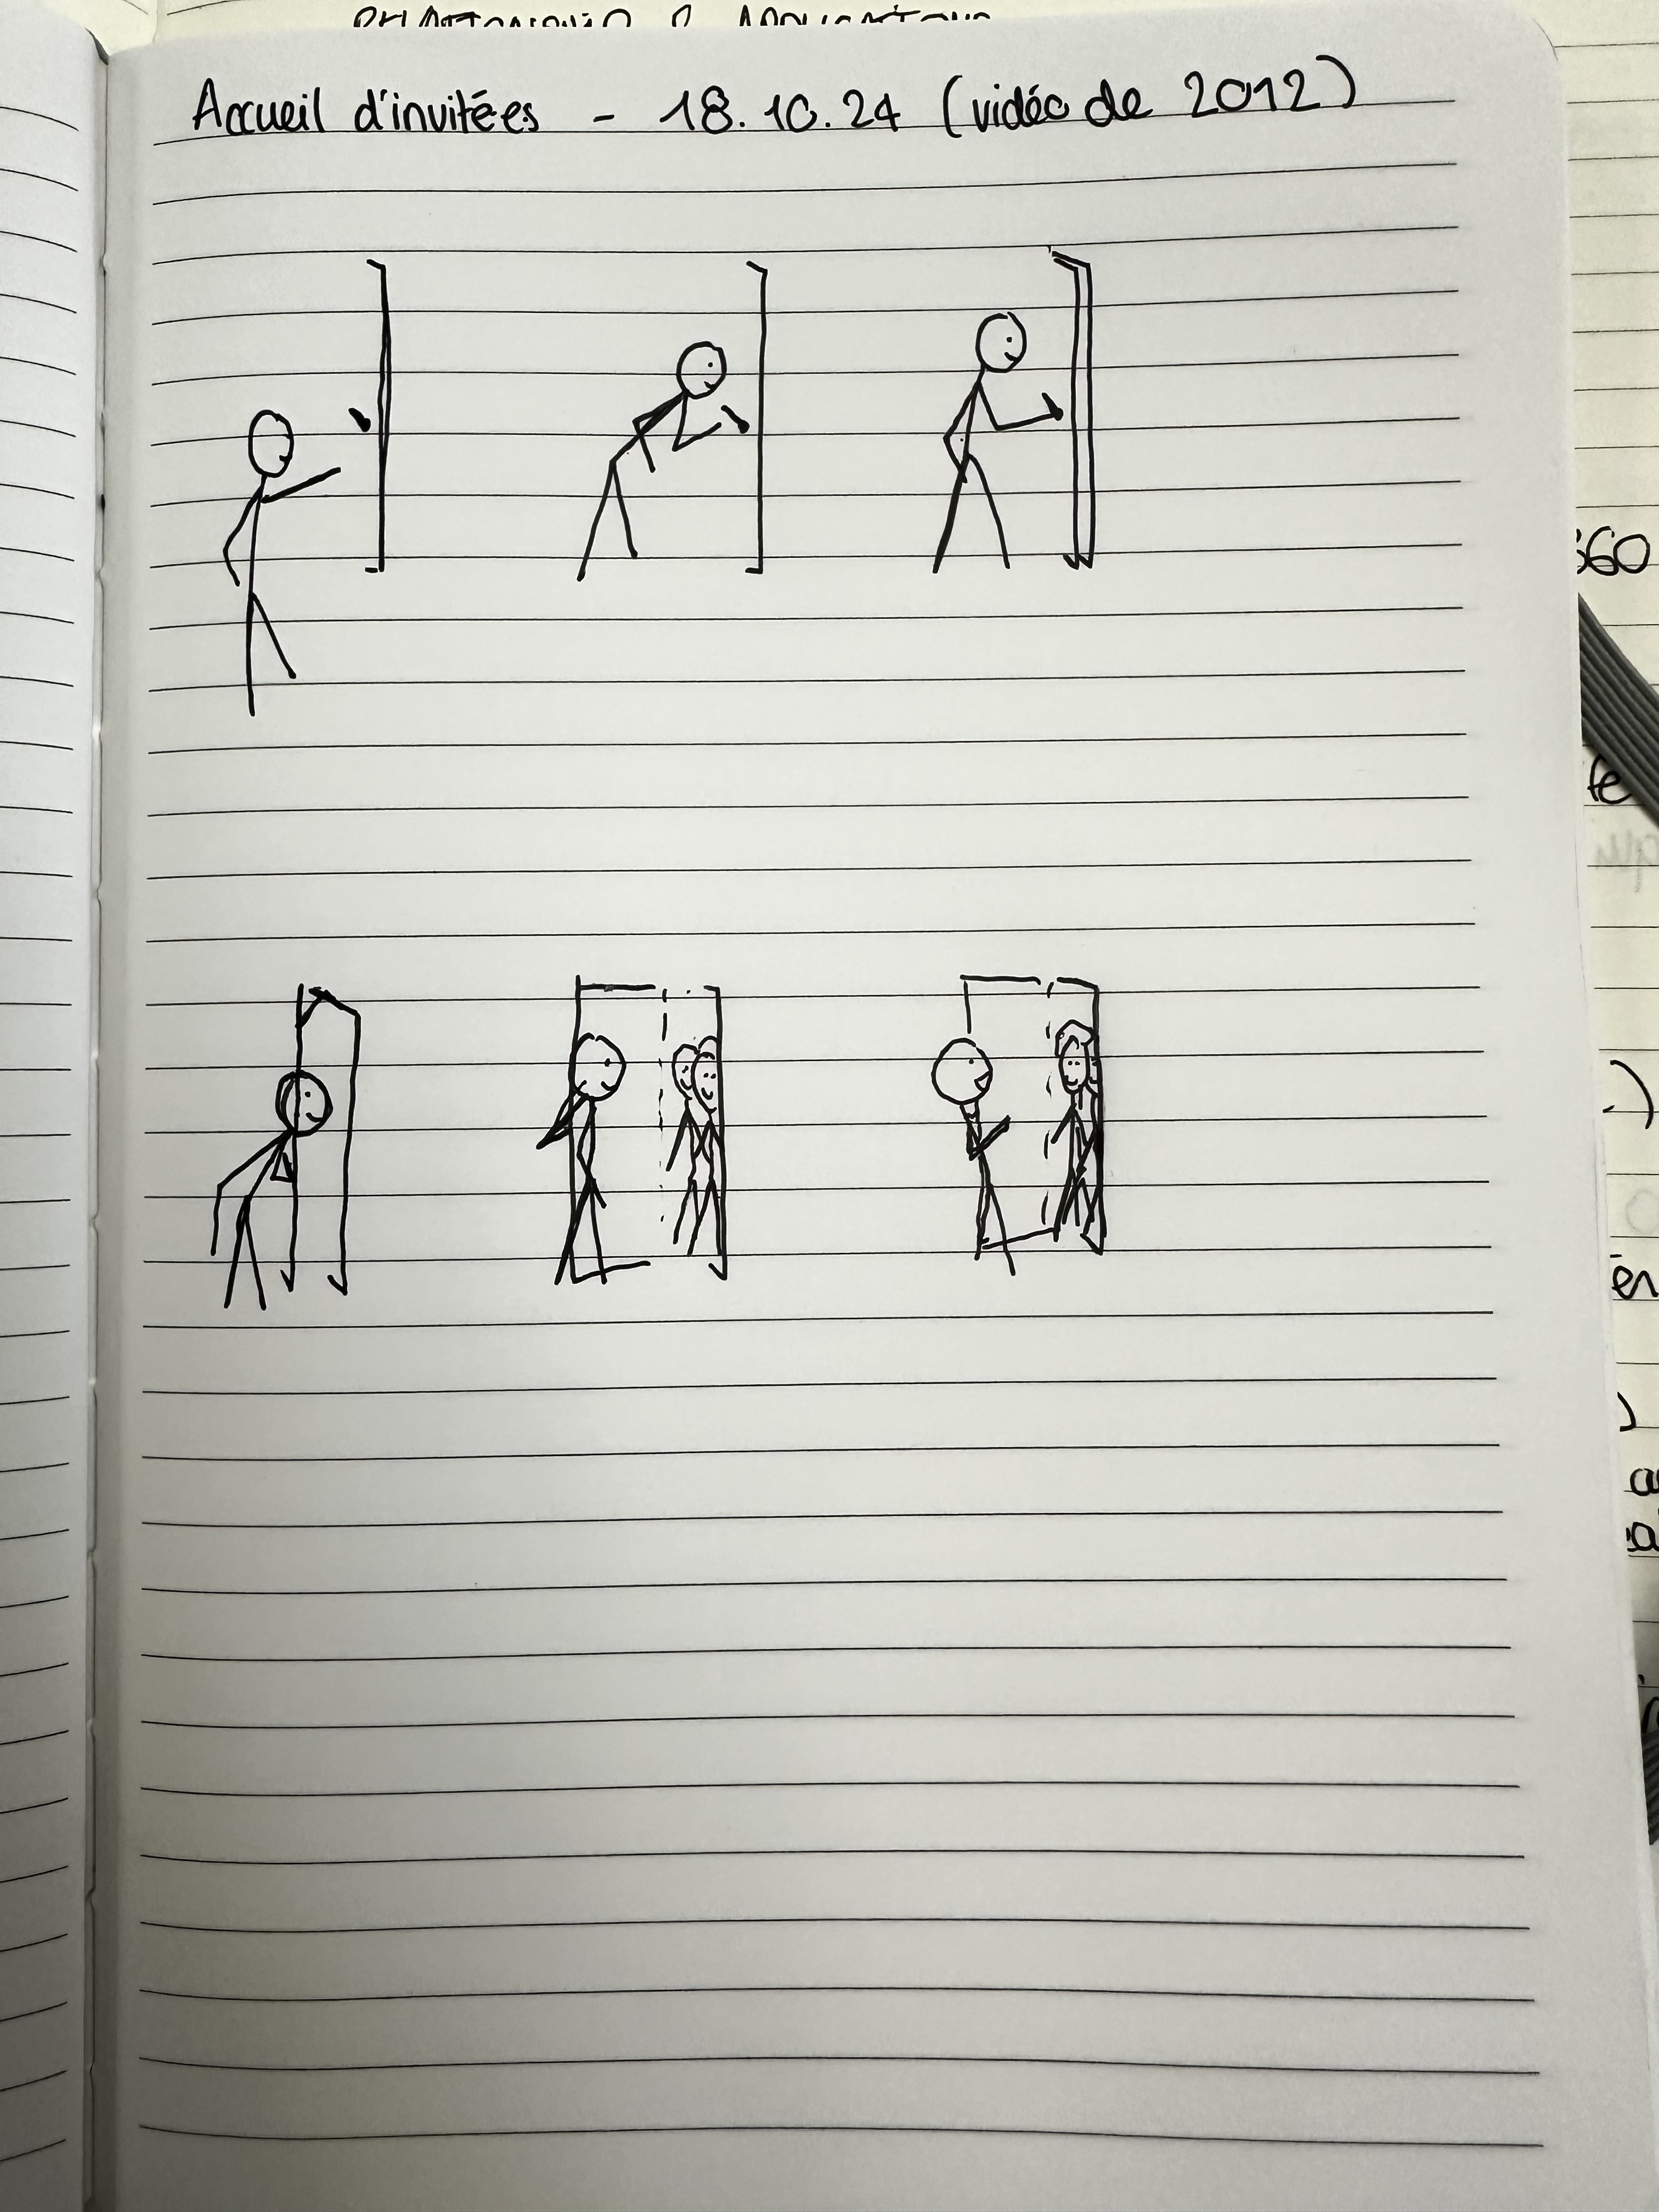 Accueil d'invitées - 18.10.24 (vidéo de 2012)